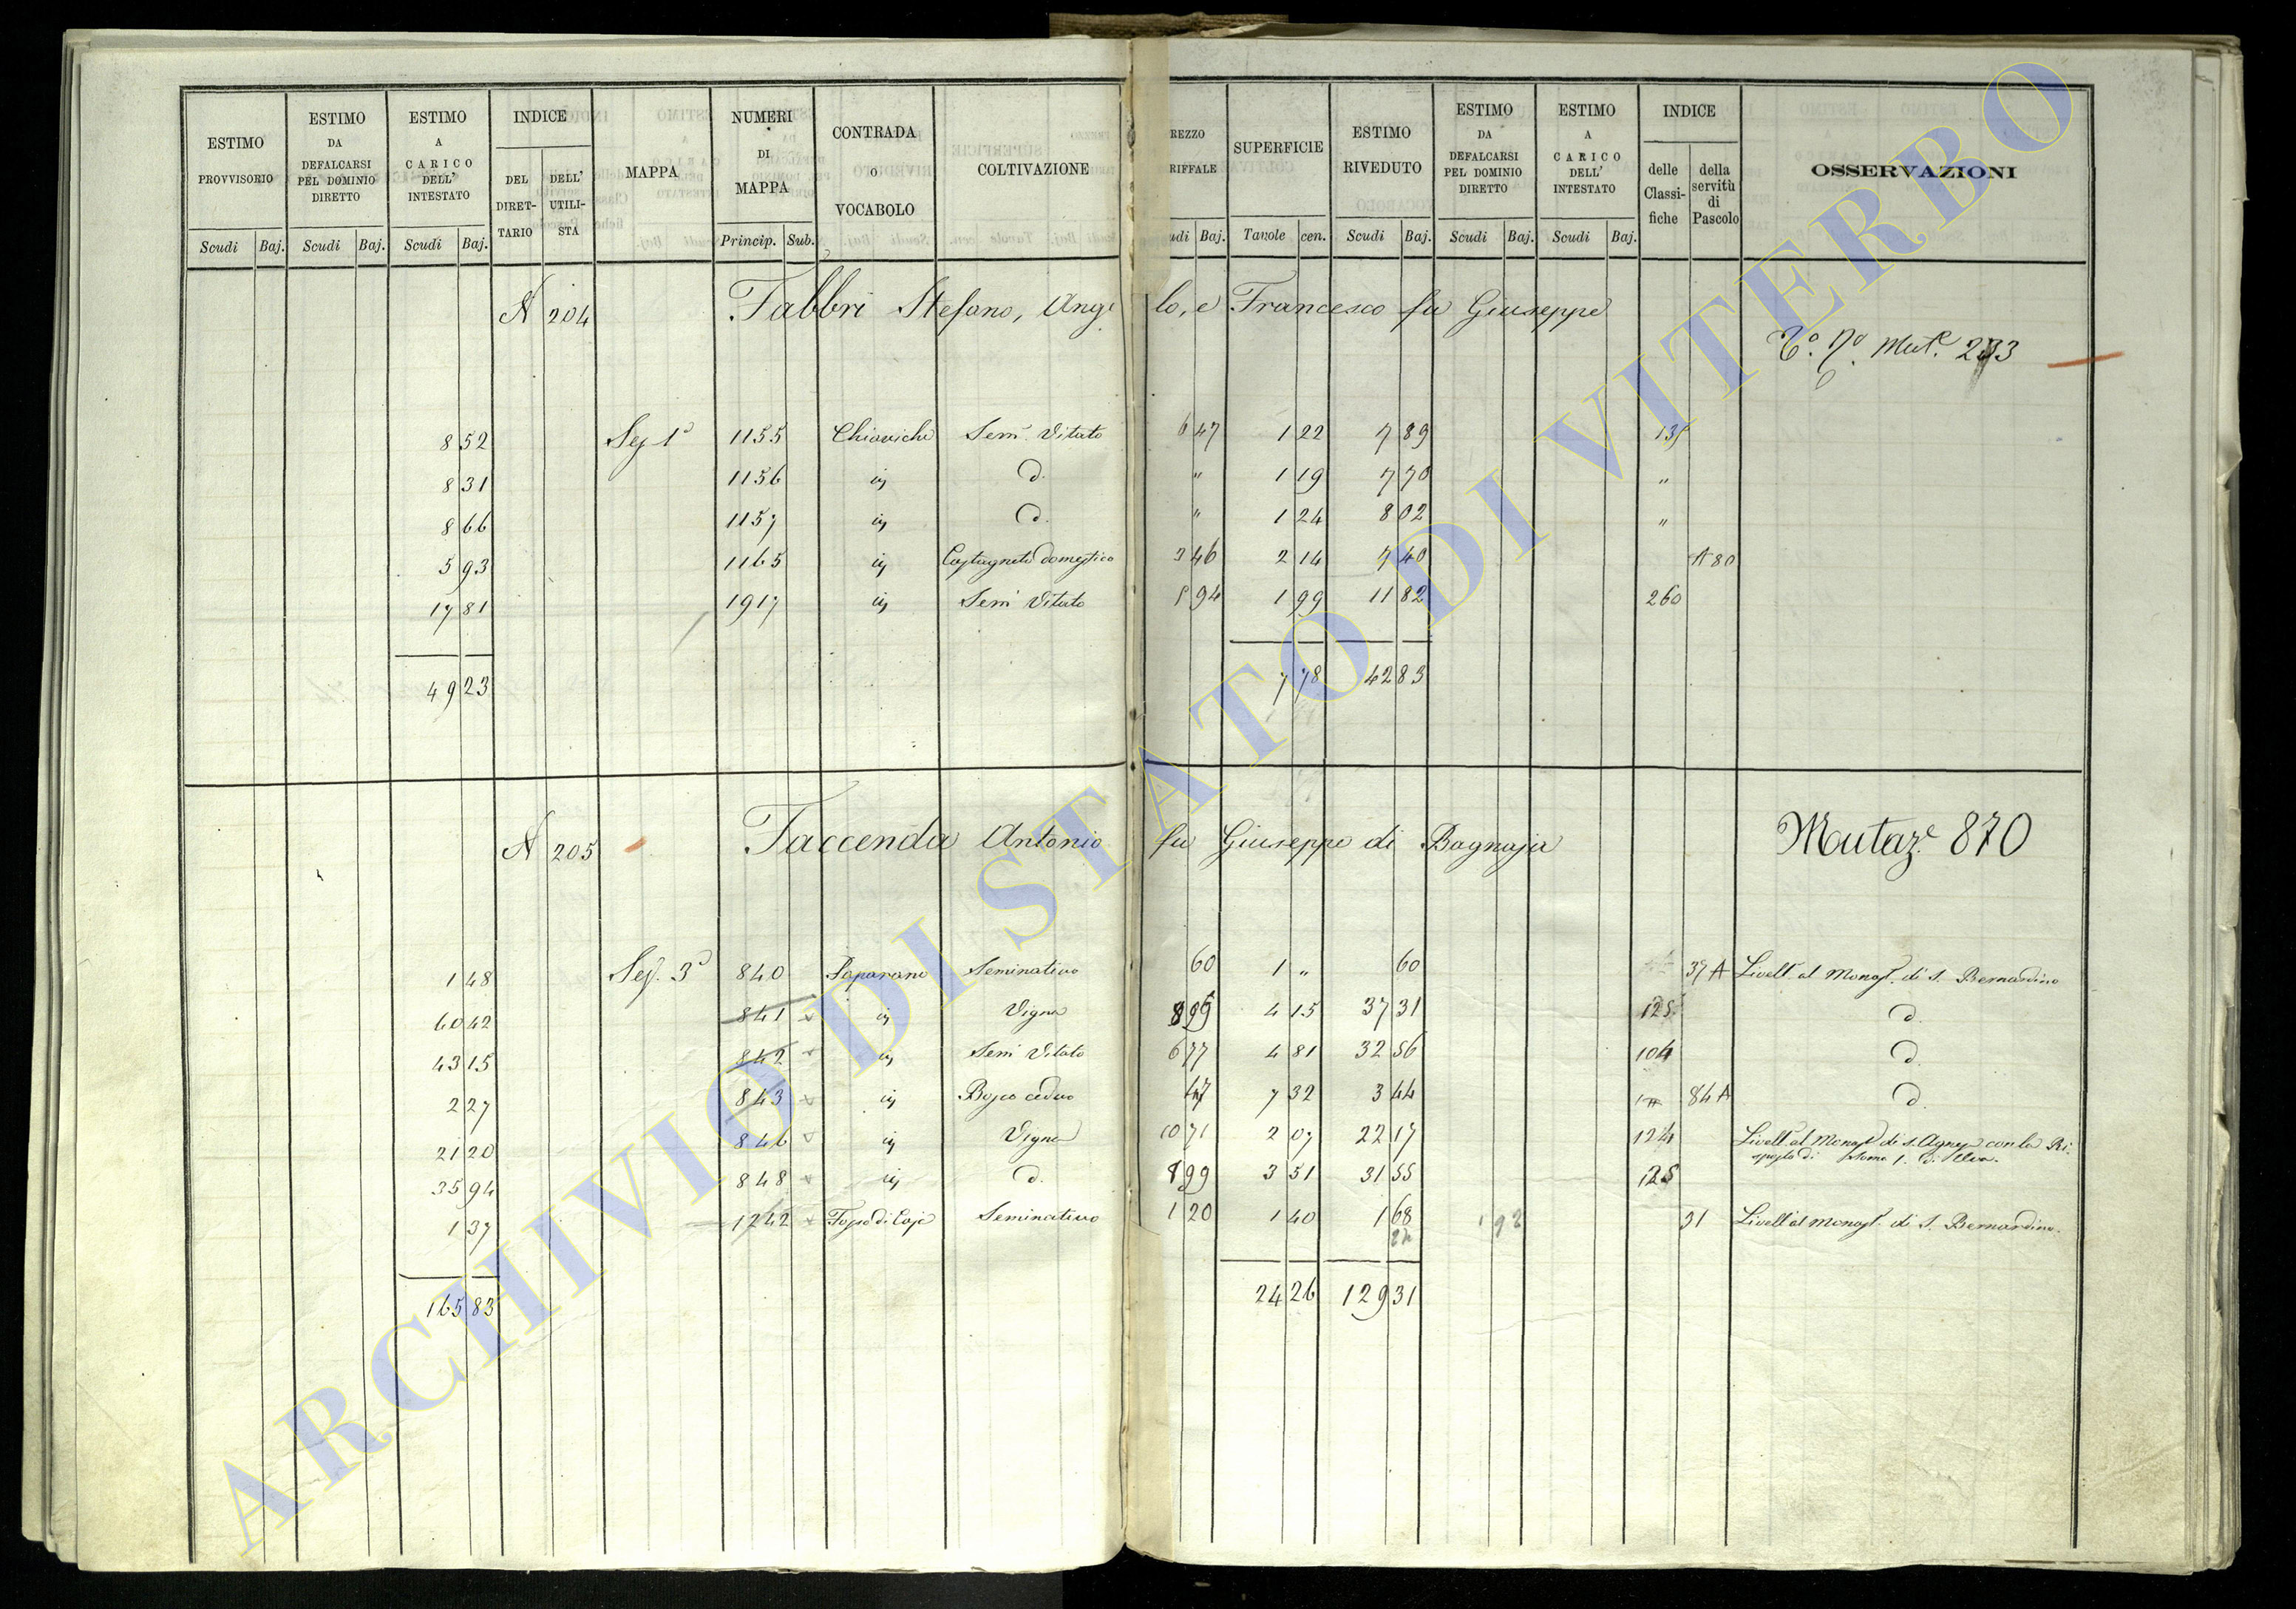 ESTIMO PROVVISORIO
ESTIMO DA DEFALCARSI PEL DOMINIO DIRETTO
ESTIMO A CARICO DELL' INTESTATO
INDICE
DEL DIRET-TARIO
DELL' UTILI-STA
MAPPA
NUMERI DI MAPPA
CONTRADA O VOCABOLO
COLTIVAZIONE
REZZO RIFFALE
SUPERFICIE
ESTIMO RIVEDUTO
ESTIMO DA DEFALCARSI PEL DOMINIO DIRETTO
ESTIMO A CARICO DELL' INTESTATO
INDICE
delle Classi-fiche
della servitù di Pascolo
OSSERVAZIONI
Scudi Baj. Scudi Baj. Scudi Baj. Princip. Sub. udi Baj. Tavole cen. Scudi Baj. Scudi Baj. Scudi Baj.
N 204 Fabbri Stefano, Angelo, e Francesco fu Giuseppe
Mut.e
8 52 Sez 1a 1155 Chiaviche Sem Vitato 6 47 1 22 7 89
8 31 1156 in d. " 1 19 7 70 "
8 66 1157 in d. " 1 24 8 02 "
5 93 1165 in Castagneto domestico 3 46 2 14 7 40 A 80
17 81 1917 in Sem Vitato 5 94 1 99 11 82 260
49 23 7 78 42 83
N 205 Faccenda Antonio fu Giuseppe di Bagnaja Mutaz.e 870
1 48 Sez. 3a 840 Paparano Seminativo 60 1 " 60 37 A Livell. al Monast. di S. Bernardino
60 42 841 in Vigna 8 99 4 15 37 31 125 d.
43 15 842 in Sem Vitato 6 77 4 81 32 56 104 d.
2 27 843 in Bosco ceduo 47 7 32 3 44 84 A d.
21 20 846 in Vigna 10 71 2 07 22 17 124 Livell. al Monast. di S. Agnese con la Ri-
sposta di
35 94 848 in d. 8 99 3 51 31 55 125
1 37 1242 Fosso di Caje Seminativo 1 20 1 40 1 68 31 Livell. al Monast. di S. Bernardino.
165 83 24 26 129 31
ARCHIVIO DI STATO DI VITERBO